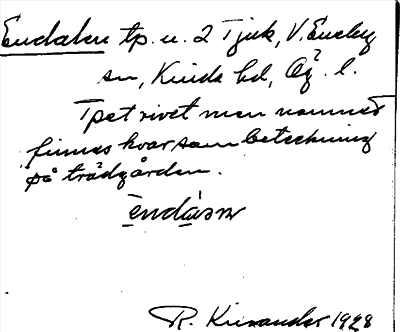 Endalen tp. u. 2 Tjuk, V. Eneby
sn, Kinda hd, Ög. l.
Tpet rivet men namnet
finnes kvar som beteckning
på trädgården.
ènda̓sn
R. Kinander 1928